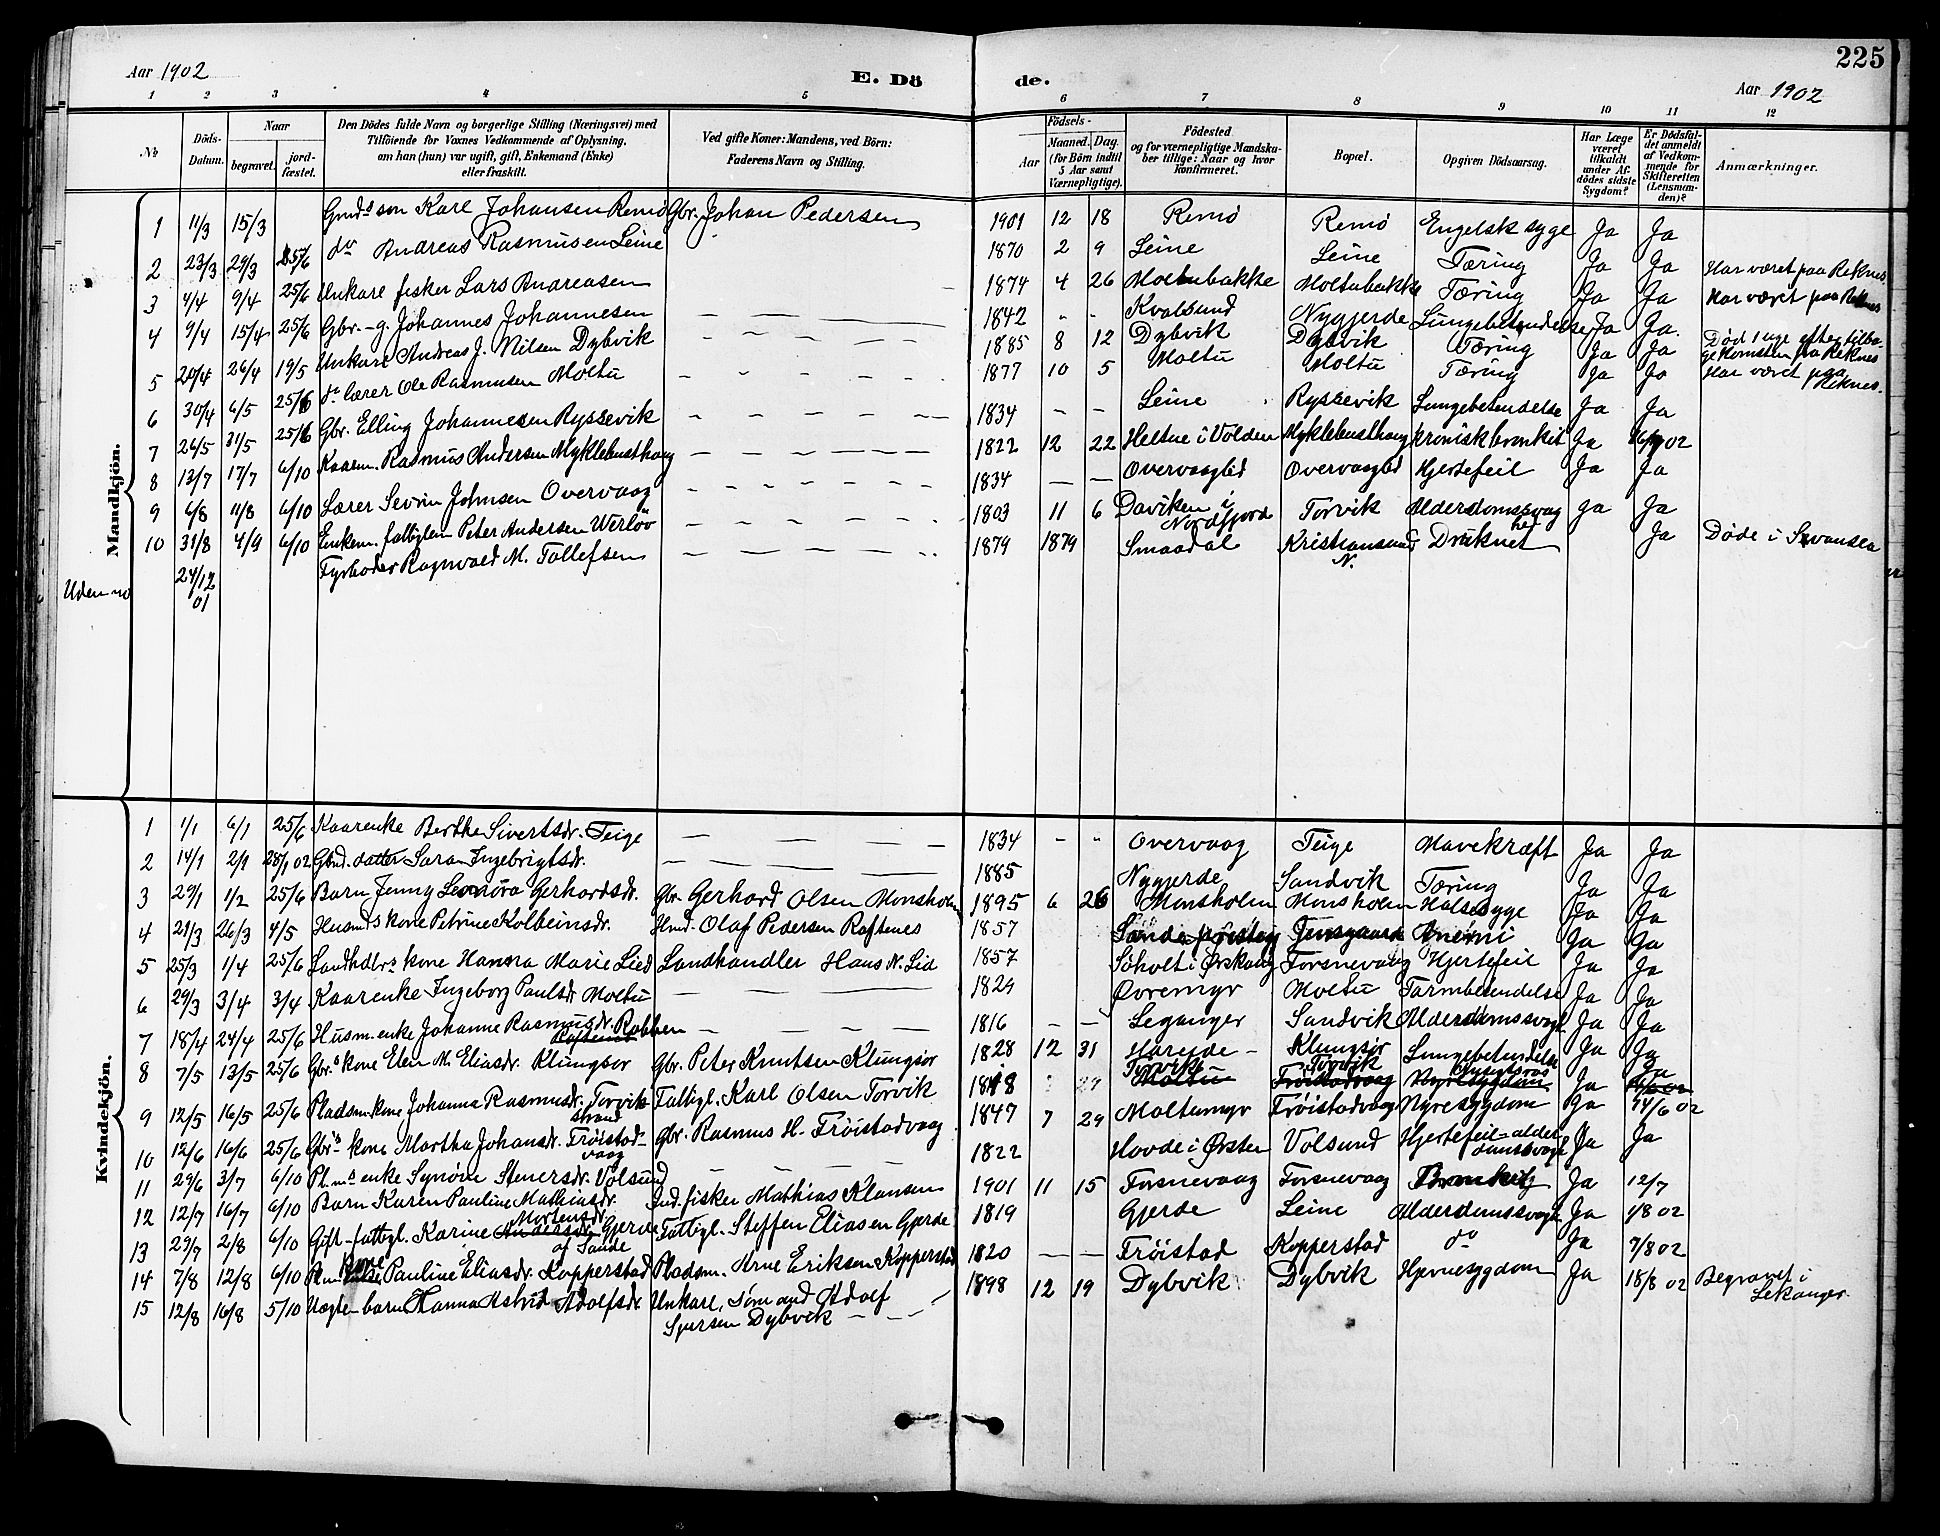 225
Aar 1902
E. Dö
de.
Aar 1902
1 2 3 4 5 6 7 8 9 10 11 12
№
Döds-Datum.
Naar
begravet.
jord-fæstet.
Den Dödes fulde Navn og borgerlige Stilling (Næringsvei) med
Tilföiende for Voxnes Vedkommende af Oplysning,
om han (hun) var ugift, gift, Enkemand (Enke)
eller fraskilt.
Ved gifte Koner: Mandens, ved Börn:
Faderens Navn og Stilling.
Födsels-
Aar
Maaned. Dag.
(for Börn indtil
5 Aar samt
Værnepligtige).
Födested
og for værnepligtige Mandskaber tillige: Naar og hvor
konfirmeret.
Bopæl.
Opgiven Dödsaarsag.
Har Læge
været
tilkaldt
under Afdödes sidste
Sygdom?
Er Dödsfaldet anmeldt
af Vedkommende for
Skifteretten
(Lensmanden)?
Anmærkninger.
Mandkjön.
1 11/3 15/3 Gmds son Karl Johansen Remö Gbr. Johan Pedersen 1901 12 18 Remö Remö Engelsk syge Ja Ja
2 23/3 29/3 25/6 do Andreas Rasmusen Leine 1870 2 9 Leine Leine Tæring Ja Ja Har været paa Reknes
3 4/4 9/4 25/6 Unkarl fisker Lars Andreasen 1874 4 26 Moltubakke Moltubakke Tæring Ja Ja Har været paa Reknes
4 9/4 15/4 25/6 Gbr. - g. Johannes Johannesen 1842 - - Kvalsund Nygjerde Lungebetendelse Ja Ja.
5 20/4 26/4 19/5 Unkarl Andreas J. Nilsen Dybvik 1885 8 12 Dybvik Dybvik Tæring Ja Ja Död 1 uge efter tilbagekomsten paa Reknes
6 30/4 6/5 25/6 do lærer Ole Rasmusen Moltu 1877 10 5 Moltu Moltu Tæring Ja Ja Har været paa Reknes.
7 26/5 31/5 25/6 Gbr. Elling Johannesen Ryssevik 1834 - - Leine Ryssevik Lungebetendelse Ja Ja
8 13/7 17/7 6/10 Kaarm. Rasmus Andersen Myklebusthaug 1822 12 22 Heltne i Volden Myklebusthaug kronisk bronkit Ja 02
9 6/8 11/8 6/10 Lærer Sevrin Johnsen Overvaag 1834 - - Overvaaglid Overvaaglid Hjertefeil Ja Ja
10 31/8 4/9 6/10 Enkem. fattiglem Peter Andersen Werlöv 1803 11 6 Daviken i Nordfjord Torvik Alderdomssvaghet Ja Ja
Uden no 24/12 01 Fyrböder Ragnvald M. Tollefsen 1879 1879 Smaadal Kristiansund N. Druknet Ja Döde i Swansea
Kvindekjön.
1 1/1 6/1 25/6 Kaarenke Berthe Sivertsdr. Teige 1834 - - Overvaag Teige Mavekræft Ja Ja
2 14/1 2/1 28/1 02 Gbmd. datter Sara Ingebrigtsdr. 1885 Nygjerde Sandvik Tæring Ja Ja
3 29/1 1/2 25/6 Barn Jenny Leonora Gerhardsdr. Gbr. Gerhard Olsen Monsholm 1895 6 26 Monsholm Monsholm Halssyge Ja Ja
4 21/3 26/3 4/5 Husmds kone Petrine Kolbeinsdr. Hmd. Olaf Pedersen Raftenes 1857 Ja Ja
5 25/3 1/4 25/6 Landhdlrs kone Hanna Marie Lied Landhandler Hans N. Lid 1857 Söholt i Ørskoug Torsnevaag Hjertefeil Ja Ja
6 29/3 3/4 3/4 Kaarenke Ingeborg Paulsdr Moltu 1829 Övremyr Moltu Tarmbetendelse Ja Ja
7 18/4 24/4 25/6 Husm. enke Johanne Rasmusdr. Rabben Raftenes 1816 - - Leganger Sandvik Alderdomssvagh Ja Ja
8 7/5 13/5 25/6 Gbr.s kone Elen M. Eliasdr. Klungsör Gbr. Peter Knutsen Klungsör 1828 12 31 Hareide - Klungsör Lungebetendelse Ja Ja
9 12/5 16/5 25/6 Pladsm. kone Johanna Rasmusdr. Torvik strand Fattigl. Karl Olsen Torvik 1818 29 Torvik Moltu Torvik Tröistadvaag Nyresygdom Ja Ja
10 12/6 16/6 25/6 Gbr.s kone Martha Johansdr. Tröistadvaag Gbr. Rasmus H. Tröistadvaag 1847 7 29 Moltumyr Tröistadvaag Nyresygdom Ja 14/6 02
11 29/6 3/7 6/10 Pl.ms enke Synöve Stenersdr. Volsund 1822 Hovde i Ørsten Volsund Hjertefeil = alderdomssvagh Ja Ja
12 12/7 16/7 6/10 Barn Karen Pauline Mathiasdr. Ind. fisker Mathias Klausen 1901 11 15 Torsnevaag Torsnevaag Bronkit Ja 12/7
13 29/7 2/8 6/10 Gift - fattigl. Karine Andersdr. Mortensdr. Gjerde af Sande Fattigl. Steffen Eliasen Gjerde 1819 Gjerde Leine Alderdomssvagh Ja 1/8 02
14 7/8 12/8 6/10 Plm. kone Pauline Eliasdr. Kopperstad Pladsm. Arne Eriksen Kopperstad 1820 - - Tröistad Kopperstad do Ja 7/8 02
15 12/8 16/8 5/10 Uægte barn Hanna Astrid Adolfsdr. Unkarl, sömand Adolf Sjursen Dybvik 1898 12 19 Dybvik Dybvik Hjernesygdom Ja 18/8 02 Begravet i Lekanger.